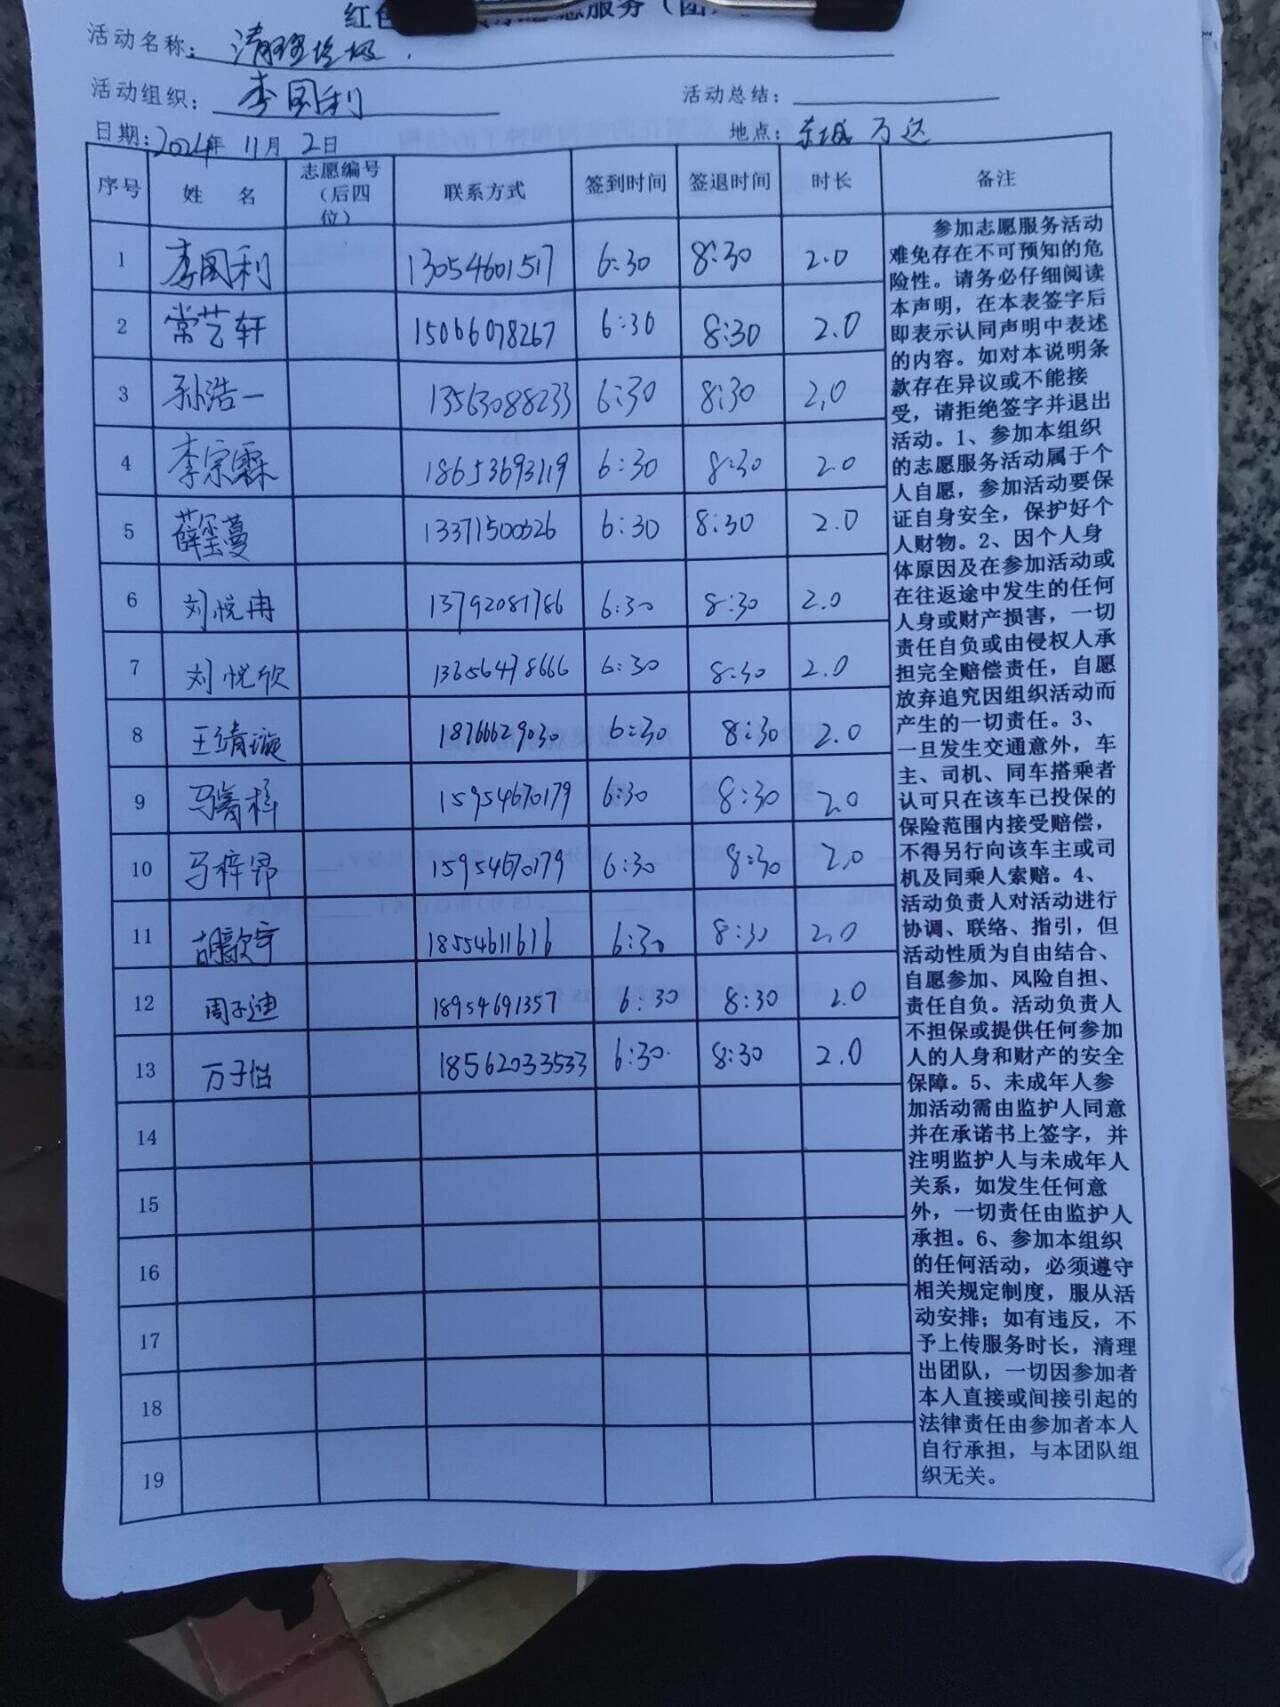 服务（团
活动名称：清理垃圾.
活动组织：李国利 活动总结：
日期：2024年 11月 2日 地点：东城万达
序号 姓 名 志愿编号（后四位） 联系方式 签到时间 签退时间 时长 备注
1 李国利 13054601517 6:30 8:30 2.0
2 常艺轩 15066078267 6:30 8:30 2.0
3 孙浩一 13563088233 6:30 8:30 2.0
4 李宗霖 18653693119 6:30 8:30 2.0
5 13371500526 6:30 8:30 2.0
6 刘悦冉 13792081786 6:30 8:30 2.0
7 刘悦欣 13656478666 6:30 8:30 2.0
8 王靖璇 18766629030 6:30 8:30 2.0
9 15954670179 6:30 8:30 2.0
10 马梓昂 15954670179 6:30 8:30 2.0
11 胡歆宇 18554611616 6:30 8:30 2.0
12 周子迪 18954691357 6:30 8:30 2.0
13 万子怡 18562033533 6:30 8:30 2.0
14
15
16
17
18
19
参加志愿服务活动
难免存在不可预知的危
险性。请务必仔细阅读
本声明，在本表签字后
即表示认同声明中表述
的内容。如对本说明条
款存在异议或不能接
受，请拒绝签字并退出
活动。1、参加本组织
的志愿服务活动属于个
人自愿，参加活动要保
证自身安全，保护好个
人财物。2、因个人身
体原因及在参加活动或
在往返途中发生的任何
人身或财产损害，一切
责任自负或由侵权人承
担完全赔偿责任，自愿
放弃追究因组织活动而
产生的一切责任。3、
一旦发生交通意外，车
主、司机、同车搭乘者
认可只在该车已投保的
保险范围内接受赔偿，
不得另行向该车主或司
机及同乘人索赔。4、
活动负责人对活动进行
协调、联络、指引，但
活动性质为自由结合、
自愿参加、风险自担、
责任自负。活动负责人
不担保或提供任何参加
人的人身和财产的安全
保障。5、未成年人参
加活动需由监护人同意
并在承诺书上签字，并
注明监护人与未成年人
关系，如发生任何意
外，一切责任由监护人
承担。6、参加本组织
的任何活动，必须遵守
相关规定制度，服从活
动安排；如有违反，不
予上传服务时长，清理
出团队，一切因参加者
本人直接或间接引起的
法律责任由参加者本人
自行承担，与本团队组
织无关。